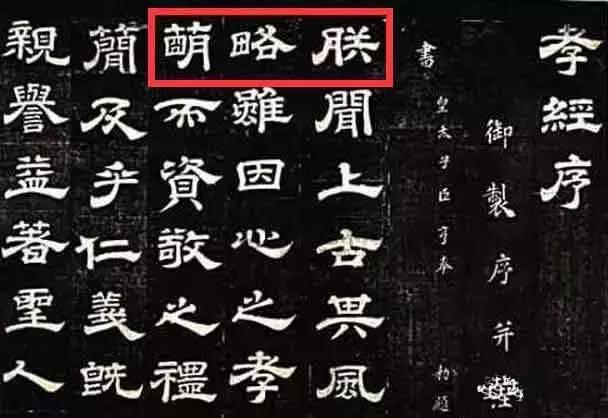 孝經序
御製序并
皇太子臣亨奉 勑題
書
朕聞上古其風
略雖因心之孝
萌而資敬之禮
簡及乎仁義既
親譽益著聖人